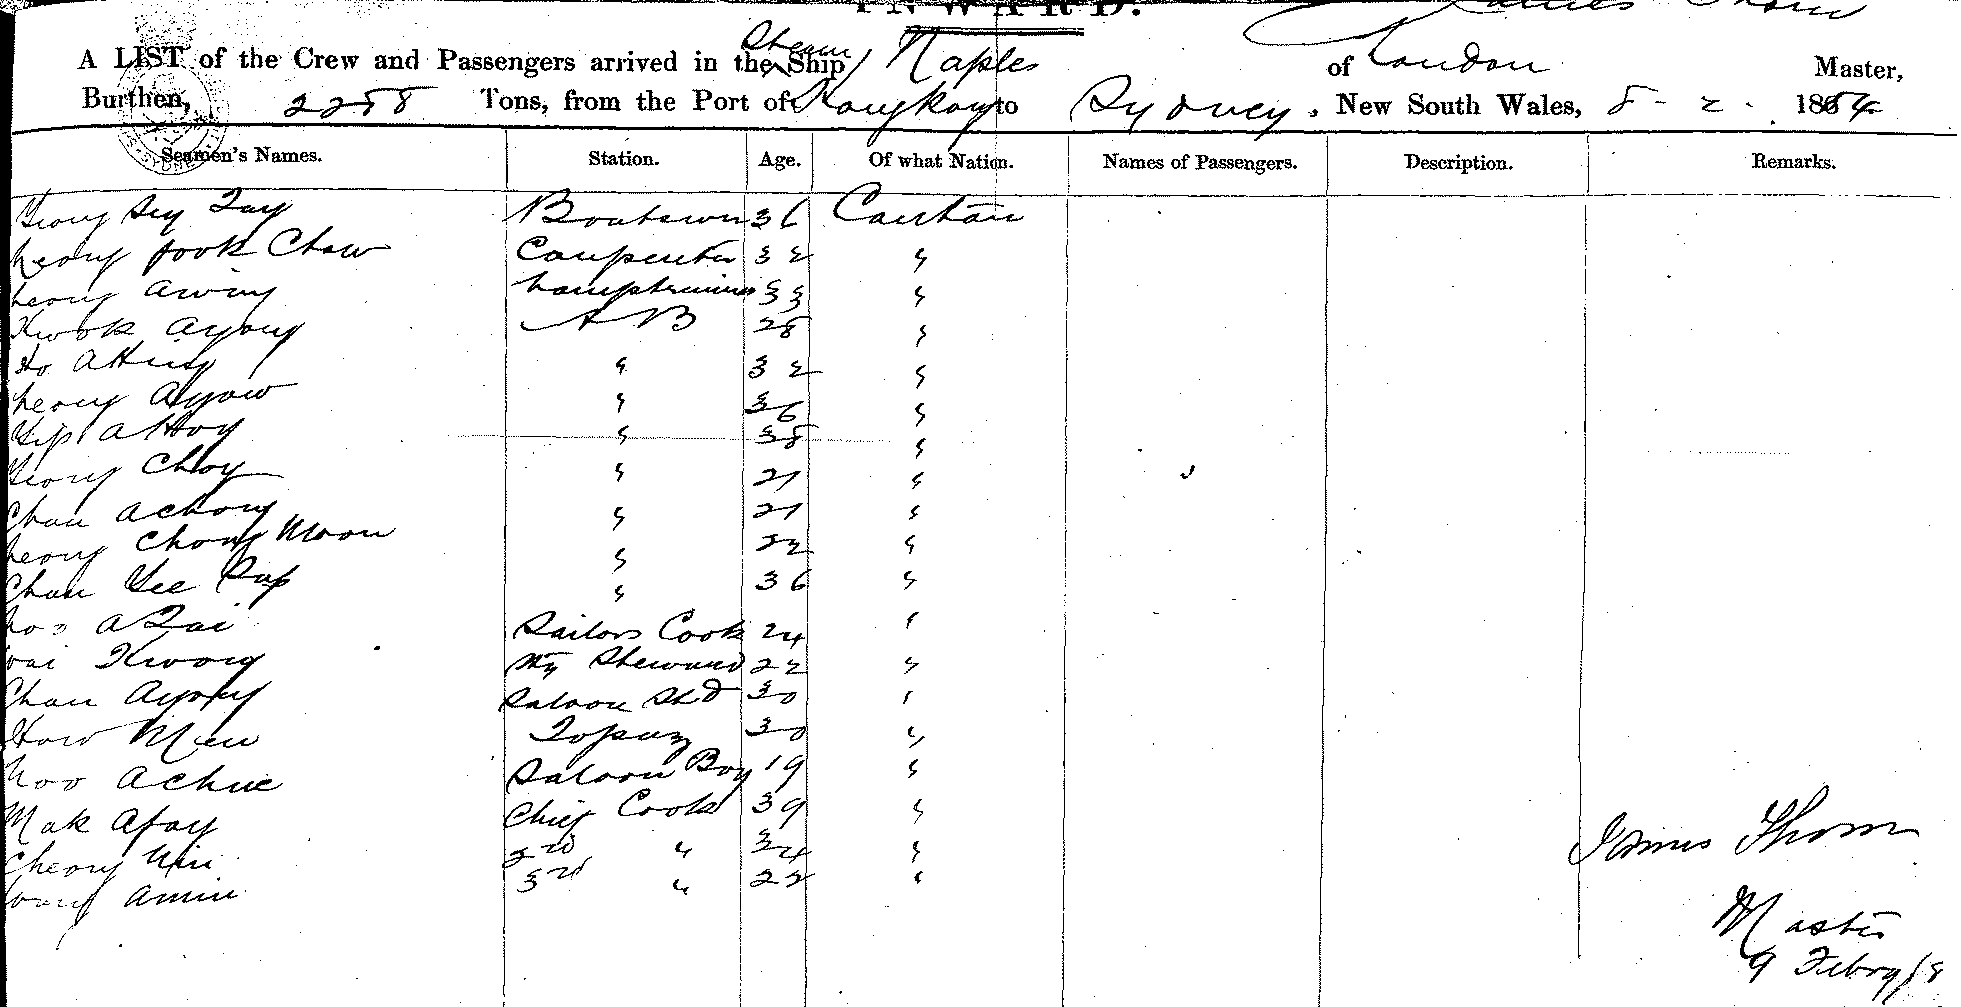 INWARD.
A LIST of the Crew and Passengers arrived in the Steam Ship Naples of London Master,
Burthen, 2288 Tons, from the Port of Hongkong to Sydney, New South Wales, 8 - 2 - 1884
Seamen's Names. Station. Age. Of what Nation. Names of Passengers. Description. Remarks.
Boatswn 36 Canton
Cheong Fook Chow Carpenter 32 "
Cheong Awing Lamptrimmer 33 "
Kwok Ayong A B 28 "
Ho " 32 "
Cheong Ayow " 36 "
Yip Ahoy " 38 "
Yeong Choy " 27 "
Chan Achong " 27 "
Cheong Chong Moon " 22 "
Chan Yee Sap " 36 "
Sailors Cook 24 "
Kwong Steward 22 "
Chan Ayong Saloon Std 30 "
How Mew Topaz 30 "
Achue Saloon Boy 19 "
Mak Afay Chief Cook 39 "
Cheong 2nd " 34 "
Amin 3rd " 22 "
James Thom
Master
9 Febry/8